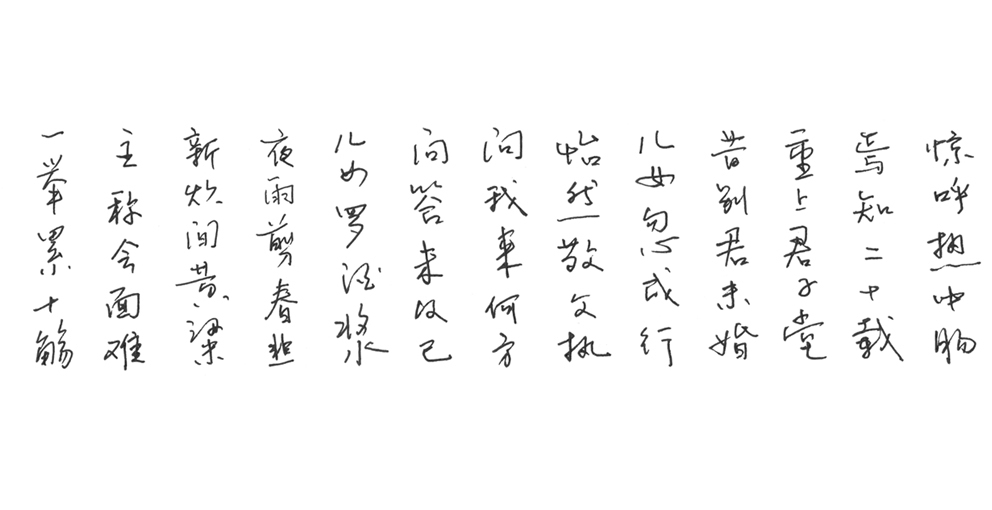 惊呼热中肠
焉知二十载
重上君子堂
昔别君未婚
儿女忽成行
怡然敬父执
问我来何方
问答未及已
儿女罗酒浆
夜雨剪春韭
新炊间黄粱
主称会面难
一举累十觞